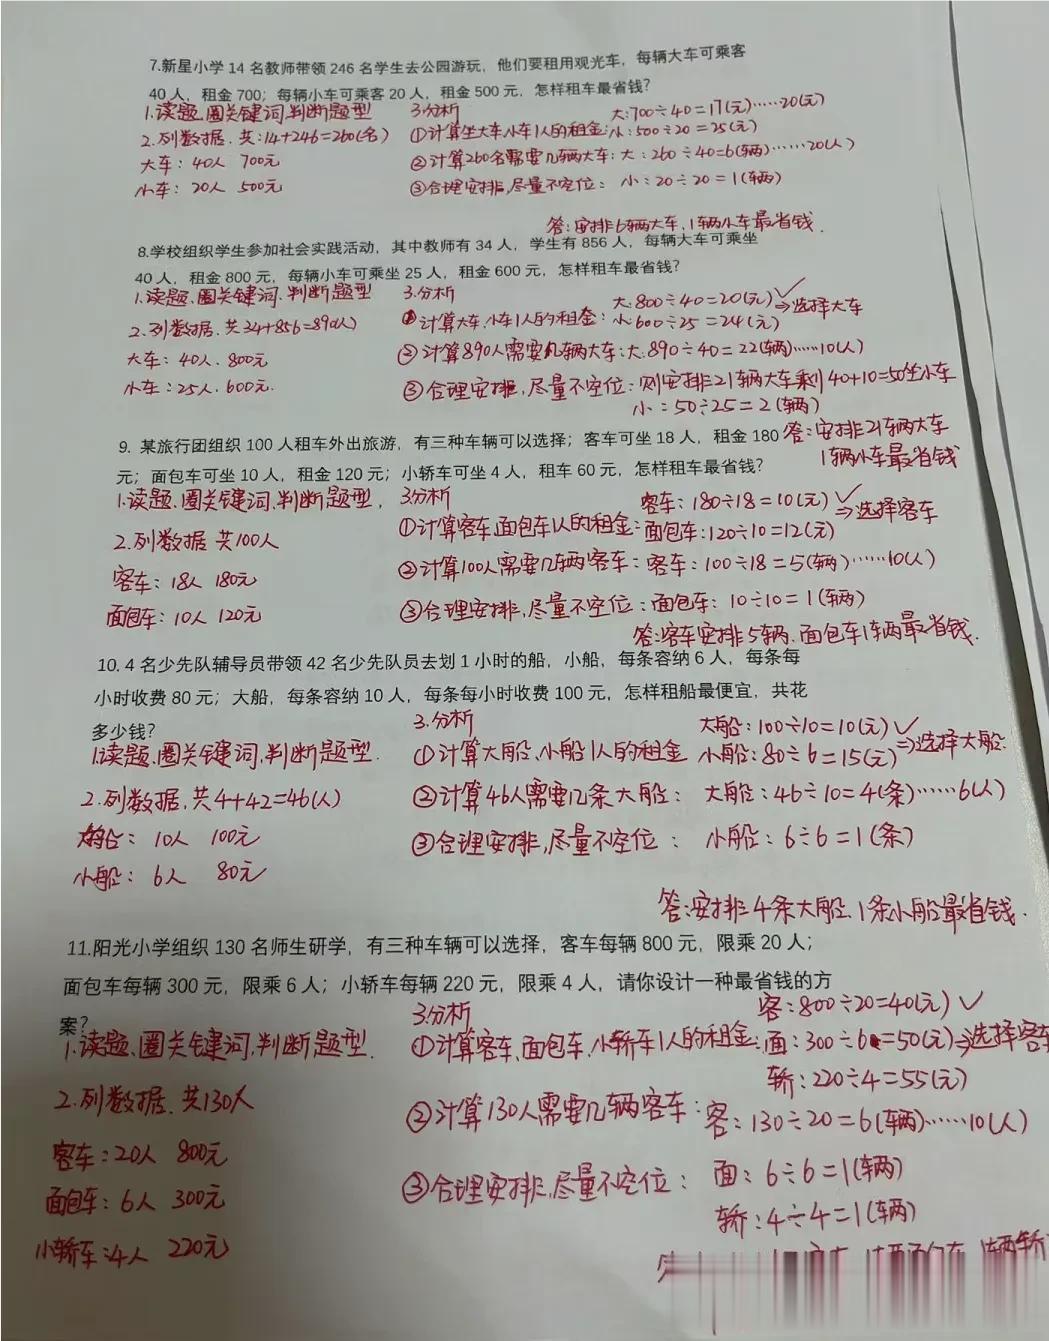 7.新星小学 14 名教师带领 246 名学生去公园游玩，他们要租用观光车，每辆大车可乘客
40 人，租金 700；每辆小车可乘客 20 人，租金 500 元，怎样租车最省钱？
1.读题、圈关键词、判断题型
2.列数据. 共:14+246=260(名)
大车: 40人 700元
小车: 20人 500元
3.分析
大:700÷40=17(元)……20(元)
①计算坐大车、小车1人的租金: 小:500÷20=25(元)
②计算260名需要几辆大车: 大: 260÷40=6(辆)……20(人)
③合理安排,尽量不空位: 小:20÷20=1(辆)
答:安排6辆大车,1辆小车最省钱.
8.学校组织学生参加社会实践活动，其中教师有 34 人，学生有 856 人，每辆大车可乘坐
40 人，租金 800 元，每辆小车可乘坐 25 人，租金 600 元，怎样租车最省钱？
1.读题、圈关键词、判断题型
2.列数据. 共34+856=890(人)
大车: 40人. 800元
小车:25人.600元.
3.分析
大:800÷40=20(元)✓
①计算大车、小车1人的租金: 小:600÷25=24(元) ⇒选择大车
②计算890人需要几辆大车:大:890÷40=22(辆)……10(人)
③合理安排,尽量不空位:则安排21辆大车剩40+10=50坐小车
小:50÷25=2(辆)
答:安排21辆大车
1辆小车最省钱
9. 某旅行团组织 100 人租车外出旅游，有三种车辆可以选择；客车可坐 18 人，租金 180
元；面包车可坐 10 人，租金 120 元；小轿车可坐 4 人，租车 60 元，怎样租车最省钱？
1.读题、圈关键词、判断题型,
2.列数据 共100人
客车: 18人 180元
面包车: 10人 120元
3分析
客车: 180÷18=10(元)✓
①计算客车,面包车1人的租金:面包车:120÷10=12(元) ⇒选择客车
②计算100人需要几辆客车: 客车: 100÷18=5(辆)……10(人)
③合理安排,尽量不空位:面包车: 10÷10=1(辆)
答:客车安排5辆、面包车1辆最省钱.
10. 4 名少先队辅导员带领 42 名少先队员去划 1 小时的船，小船，每条容纳 6 人，每条每
小时收费 80 元；大船，每条容纳 10 人，每条每小时收费 100 元，怎样租船最便宜，共花
多少钱？
1.读题、圈关键词,判断题型.
2.列数据,共4+42=46(人)
大船: 10人 100元
小船: 6人 80元
3.分析
大船:100÷10=10(元)✓
①计算大船、小船1人的租金 小船:80÷6=15(元) ⇒选择大船.
②计算46人需要几条大船: 大船:46÷10=4(条)……6(人)
③合理安排,尽量不空位: 小船: 6÷6=1(条)
答:安排4条大船、1条小船最省钱.
11.阳光小学组织 130 名师生研学，有三种车辆可以选择，客车每辆 800 元，限乘 20 人；
面包车每辆 300 元，限乘 6 人；小轿车每辆 220 元，限乘 4 人，请你设计一种最省钱的方
案？
1.读题、圈关键词,判断题型.
2.列数据. 共130人
客车:20人 800元
面包车: 6人 300元
小轿车:4人 220元
3分析
客:800÷20=40(元)✓
①计算客车、面包车,小轿车1人的租金:面:300÷6=50(元)⇒选择客车
轿:220÷4=55(元)
②计算130人需要几辆客车: 客: 130÷20=6(辆)……10(人)
③合理安排,尽量不空位: 面: 6÷6=1(辆)
轿:4÷4=1(辆)